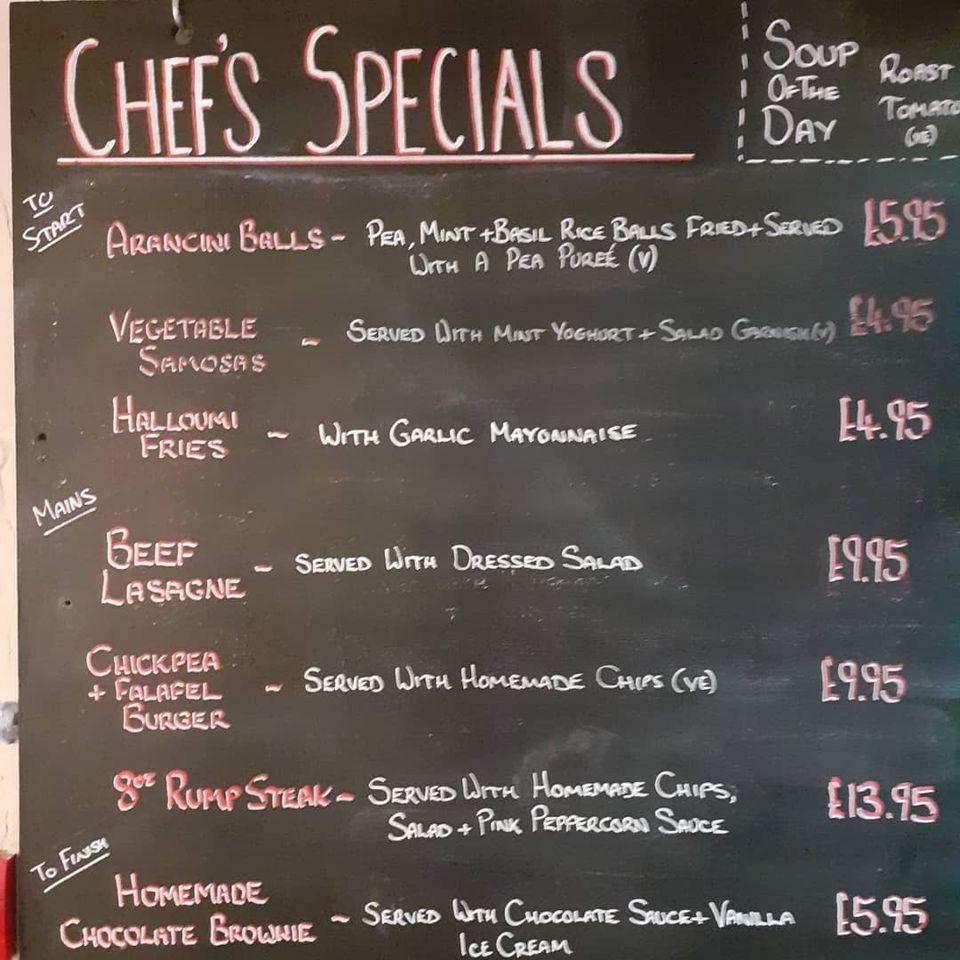 CHEF'S SPECIALS
SOUP
OF THE
DAY
ROAST
TOMATO
(VE)
TO
START
ARANCINI BALLS - PEA, MINT + BASIL RICE BALLS FRIED + SERVED £5.95
WITH A PEA PUREÉ (V)
VEGETABLE ~ SERVED WITH MINT YOGHURT + SALAD GARNISH (V) £4.95
SAMOSAS
HALLOUMI
FRIES ~ WITH GARLIC MAYONNAISE £4.95
MAINS
BEEF
LASAGNE ~ SERVED WITH DRESSED SALAD £9.95
CHICKPEA
+ FALAFEL ~ SERVED WITH HOMEMADE CHIPS (VE) £9.95
BURGER
8oz RUMP STEAK ~ SERVED WITH HOMEMADE CHIPS, £13.95
SALAD + PINK PEPPERCORN SAUCE
TO FINISH
HOMEMADE
CHOCOLATE BROWNIE ~ SERVED WITH CHOCOLATE SAUCE + VANILLA £5.95
ICE CREAM